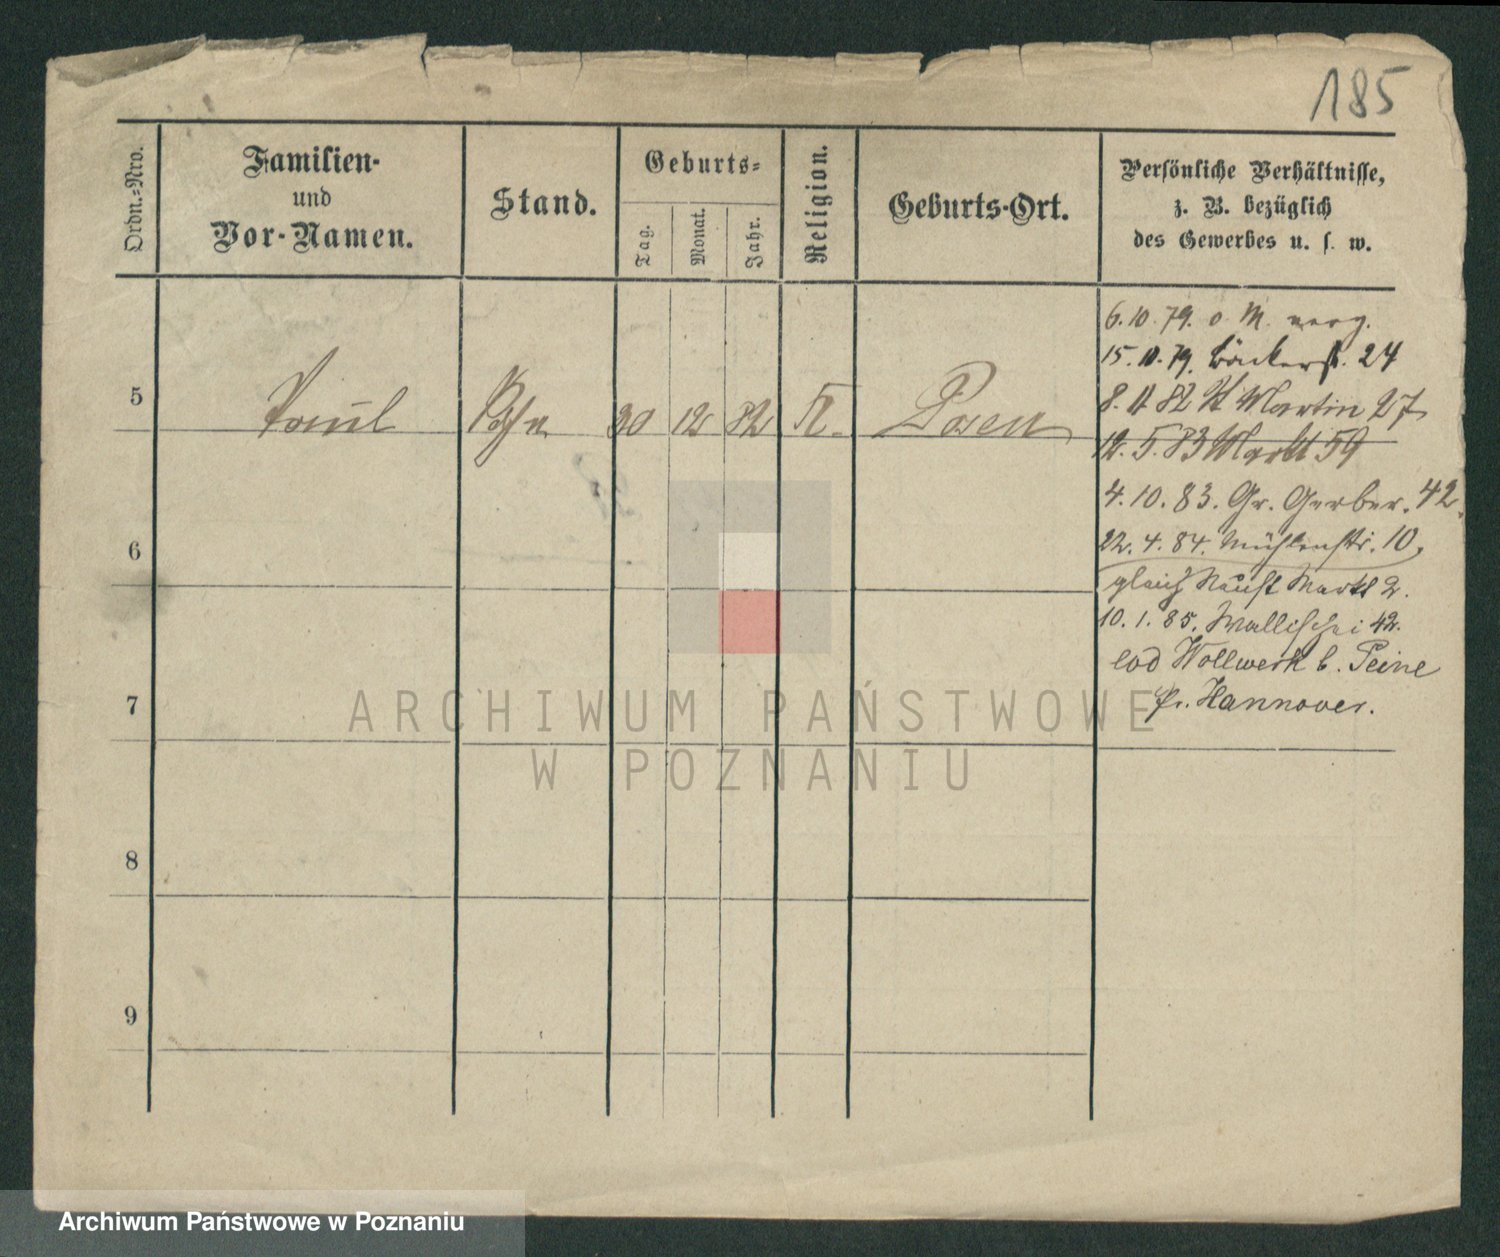 185
Ordn.-Nro.
Familien-
und
Vor-Namen.
Stand.
Geburts-
Tag.
Monat.
Jahr.
Religion.
Geburts-Ort.
Persönliche Verhältnisse,
z. B. bezüglich
des Gewerbes u. s. w.
5
Paul
Sohn
30
12
82
K.
Posen
6.10.79. o. M. verz.
15.10.79. Bäckerst. 24
8.11 82 St Martin 27
12.5.83 Markt 59
4.10.83. Gr. Gerber. 42
22.4.84. Mühlenstr. 10.
gleich Neust Markt 2.
10.1.85. Wallischei 42.
Wollwerk b. Peine
Pr. Hannover.
6
7
8
9
ARCHIWUM PAŃSTWOWE
W POZNANIU
Archiwum Państwowe w Poznaniu